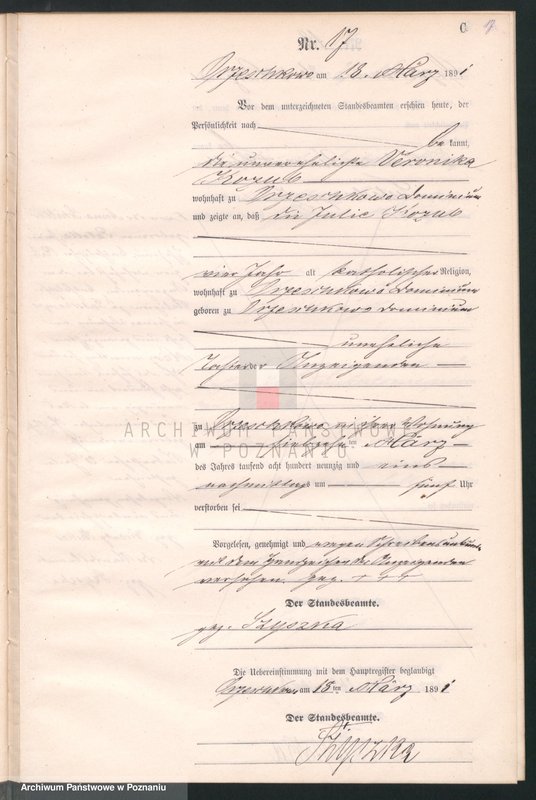 C
Nr. 17
am 18. März 1891
Vor dem unterzeichneten Standesbeamten erschien heute, der
Persönlichkeit nach
be kannt,
die unverehelichte Veronika
Kozub
wohnhaft zu Dominium
und zeigte an, daß die Julie Kozub
vier Jahr alt katholischer Religion,
wohnhaft zu Dominium
geboren zu Dominium
uneheliche
Tochter der Anzeigenden
zu in ihrer Wohnung
am ten März
des Jahres tausend acht hundert neunzig und eins
nachmittags um fünf Uhr
verstorben sei
Vorgelesen, genehmigt und wegen
mit dem Handzeichen der Anzeigenden
versehen. gez. + + +
Der Standesbeamte.
gez. Szyszka
Die Uebereinstimmung mit dem Hauptregister beglaubigt
am 18 ten März 1891
Der Standesbeamte.
Szyszka
ARCHIWUM PAŃSTWOWE
W POZNANIU
Archiwum Państwowe w Poznaniu